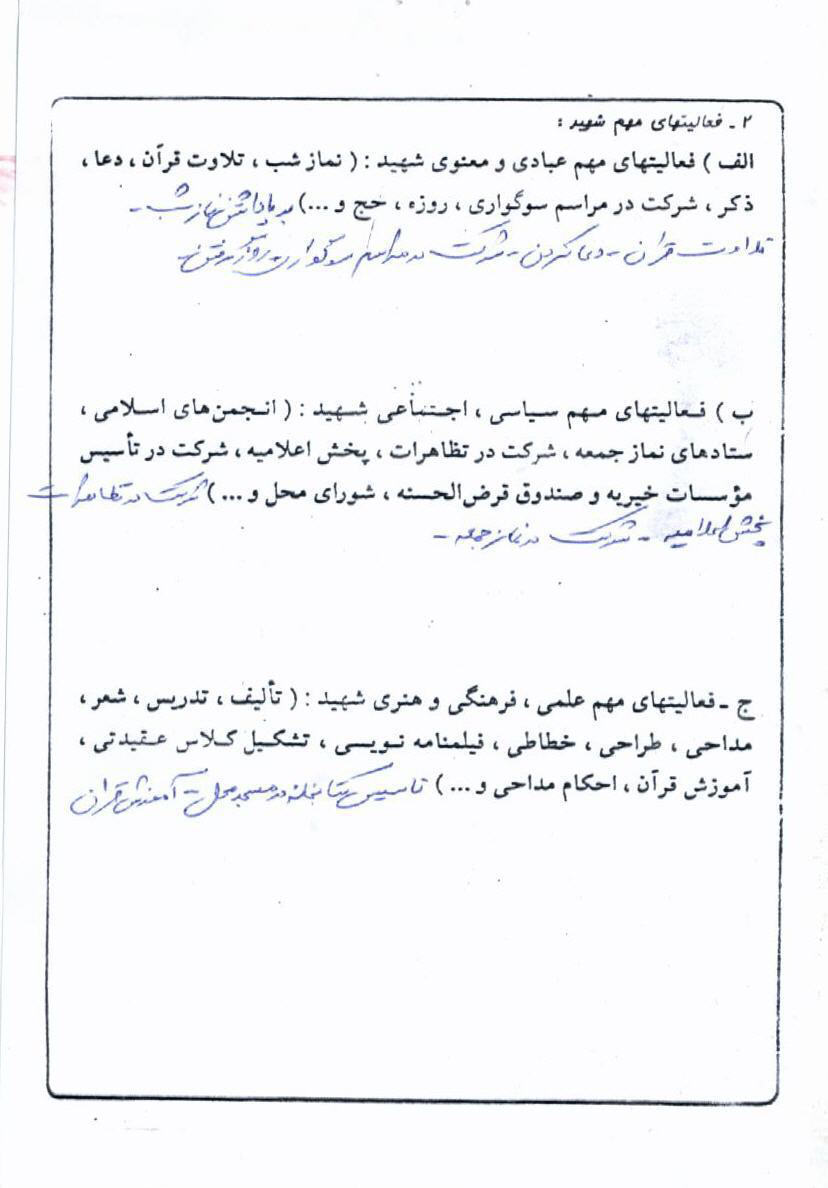 ۲ ـ فعالیتهای مهم شهید :
الف ) فعالیتهای مهم عبادی و معنوی شهید : ( نماز شب ، تلاوت قرآن ، دعا ،
ذکر ، شرکت در مراسم سوگواری ، روزه ، حج و ...) بر پا داشتن نماز شب -
تلاوت قران - دعا کردن - شرکت در مراسم سوگواری - روزه گرفتن -
ب ) فعالیتهای مهم سیاسی ، اجتماعی شهید : ( انجمن‌های اسلامی ،
ستادهای نماز جمعه ، شرکت در تظاهرات ، پخش اعلامیه ، شرکت در تأسیس
مؤسسات خیریه و صندوق قرض‌الحسنه ، شورای محل و ... ) شرکت در تظاهرات
پخش اعلامیه - شرکت در نماز جمعه -
ج ـ فعالیتهای مهم علمی ، فرهنگی و هنری شهید : ( تألیف ، تدریس ، شعر ،
مداحی ، طراحی ، خطاطی ، فیلمنامه نویسی ، تشکیل کلاس عقیدتی ،
آموزش قرآن ، احکام مداحی و ... ) تاسیس کتابخانه در مسجد محل - آموزش قران